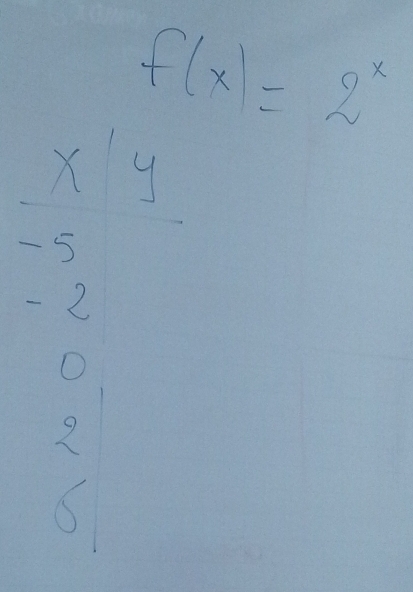 f(x) = 2^x
x | y
-5
-2
0
2
6